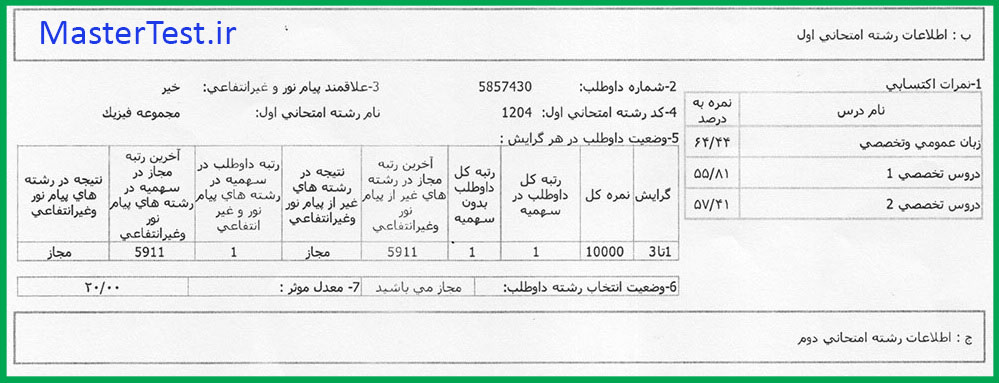 MasterTest.ir
ب : اطلاعات رشته امتحاني اول
1-نمرات اکتسابي
نام درس نمره به درصد
زبان عمومي وتخصصي ۶۴/۴۴
دروس تخصصي 1 ۵۵/۸۱
دروس تخصصي 2 ۵۷/۴۱
2-شماره داوطلب: 5857430 3-علاقمند پيام نور و غيرانتفاعي: خير
4-کد رشته امتحاني اول: 1204 نام رشته امتحاني اول: مجموعه فيزيك
5-وضعيت داوطلب در هر گرايش :
گرايش
نمره کل
رتبه کل داوطلب در سهميه
رتبه کل داوطلب بدون سهميه
آخرين رتبه مجاز در رشته هاي غير از پيام نور وغيرانتفاعي
نتيجه در رشته هاي غير از پيام نور وغيرانتفاعي
رتبه داوطلب در سهميه در رشته هاي پيام نور و غير انتفاعي
آخرين رتبه مجاز در سهميه در رشته هاي پيام نور وغيرانتفاعي
نتيجه در رشته هاي پيام نور وغيرانتفاعي
1تا3 10000 1 1 5911 مجاز 1 5911 مجاز
6-وضعيت انتخاب رشته داوطلب: مجاز مي باشيد 7- معدل موثر : ۲۰/۰۰
ج : اطلاعات رشته امتحاني دوم